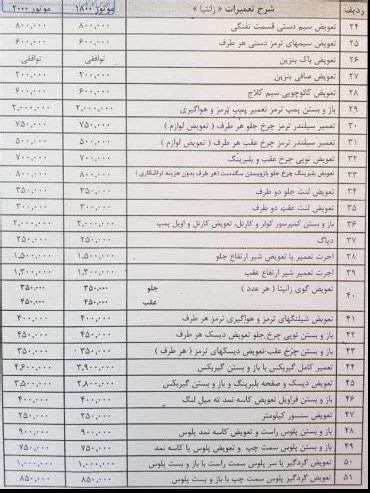 ردیف شرح تعمیرات « زانتیا » موتور ۱۸۰۰ موتور ۲۰۰۰
۲۴ تعویض سیم دستی قسمت تفنگی ۸۰۰,۰۰۰ ۸۰۰,۰۰۰
۲۵ تعویض سیمهای ترمز دستی هر طرف ۶۰۰,۰۰۰ ۶۰۰,۰۰۰
۲۶ تعویض باک بنزین توافقی توافقی
۲۷ تعویض صافی بنزین ۲۰۰,۰۰۰ ۲۰۰,۰۰۰
۲۸ تعویض گائوچویی سیم کلاج ۶۰۰,۰۰۰ ۶۰۰,۰۰۰
۲۹ باز و بستن پمپ ترمز تعمیر پمپ ترمز و هواگیری ۲,۰۰۰,۰۰۰ ۲,۰۰۰,۰۰۰
۳۰ تعمیر سیلندر ترمز چرخ جلو هر طرف ( تعویض لوازم ) ۷۵۰,۰۰۰ ۷۵۰,۰۰۰
۳۱ تعمیر سیلندر ترمز چرخ عقب هر طرف ( تعویض لوازم ) ۵۰۰,۰۰۰ ۵۰۰,۰۰۰
۳۲ تعویض توپی چرخ عقب و بلبرینگ ۷۰۰,۰۰۰ ۷۰۰,۰۰۰
۳۳ تعویض بلبرینگ چرخ جلو بازوبستن سگدست (هر طرف بدون هزینه تراشکاری) ۸۰۰,۰۰۰ ۸۰۰,۰۰۰
۳۴ تعویض لنت جلو دو طرف ۳۵۰,۰۰۰ ۳۵۰,۰۰۰
۳۵ تعویض لنت عقب دو طرف ۳۰۰,۰۰۰ ۳۰۰,۰۰۰
۳۶ باز و بستن کمپرسور کولر و کارتل، تعویض کارتل و اویل پمپ ۲,۰۰۰,۰۰۰ ۲,۰۰۰,۰۰۰
۳۷ دیاگ ۲۵۰,۰۰۰ ۲۵۰,۰۰۰
۳۸ اجرت تعمیر یا تعویض شیر ارتفاع جلو ۱,۵۰۰,۰۰۰ ۱,۵۰۰,۰۰۰
۳۹ اجرت تعمیر شیر ارتفاع عقب ۱,۳۰۰,۰۰۰ ۱,۳۰۰,۰۰۰
۴۰ تعویض گوی زانتیا ( هر عدد ) جلو ۳۵۰,۰۰۰ ۳۵۰,۰۰۰
عقب ۴۵۰,۰۰۰ ۴۵۰,۰۰۰
۴۱ تعویض شیلنگهای ترمز و هواگیری ترمز هر طرف ۴۰۰,۰۰۰ ۴۰۰,۰۰۰
۴۲ باز و بستن توپی چرخ جلو تعویض دیسک هر طرف ۴۵۰,۰۰۰ ۴۵۰,۰۰۰
۴۳ باز و بستن چرخ عقب تعویض دیسکهای ترمز ( هر طرف ) ۳۵۰,۰۰۰ ۳۵۰,۰۰۰
۴۴ تعمیر کامل گیربکس با باز و بستن گیربکس ۳,۹۰۰,۰۰۰ ۴,۶۰۰,۰۰۰
۴۵ تعویض دیسک و صفحه بلبرینگ و باز و بست گیربکس ۲,۸۰۰,۰۰۰ ۳,۵۰۰,۰۰۰
۴۶ باز و بستن فراویل تعویض کاسه نمد ته میل لنگ ۴۰۰,۰۰۰ ۴۰۰,۰۰۰
۴۷ تعویض سنسور کیلومتر ۲۵۰,۰۰۰ ۲۵۰,۰۰۰
۴۸ باز و بستن پلوس راست و تعویض کاسه نمد پلوس ۹۰۰,۰۰۰ ۹۰۰,۰۰۰
۴۹ باز و بستن پلوس سمت چپ و تعویض پلوس یا کاسه نمد ۷۵۰,۰۰۰ ۷۵۰,۰۰۰
۵۰ تعویض گردگیر یا سر پلوس سمت راست با باز و بست پلوس ۱,۰۰۰,۰۰۰ ۱,۰۰۰,۰۰۰
۵۱ تعویض گردگیر پلوس سمت چپ با باز و بست پلوس ۸۵۰,۰۰۰ ۸۵۰,۰۰۰